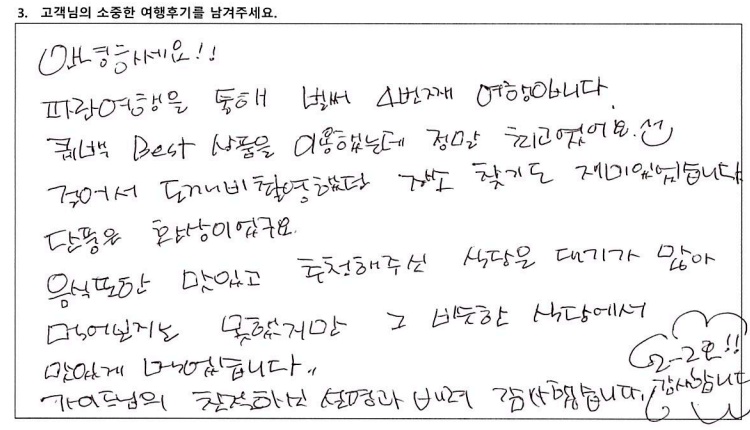 3. 고객님의 소중한 여행후기를 남겨주세요.
안녕하세요!!
파란여행을 통해 벌써 4번째 여행입니다.
퀘백 Best 상품을 이용했는데 정말 최고였어요.
걸어서 도깨비촬영했던 장소 찾기도 재미있었습니다
단풍은 환상이었구요.
음식또한 맛있고 추천해주신 식당은 대기가 많아
먹어보지는 못했지만 그 비슷한 식당에서
맛있게 먹었습니다..
가이드님의 친절하신 설명과 배려 감사했습니다.
감사합니다